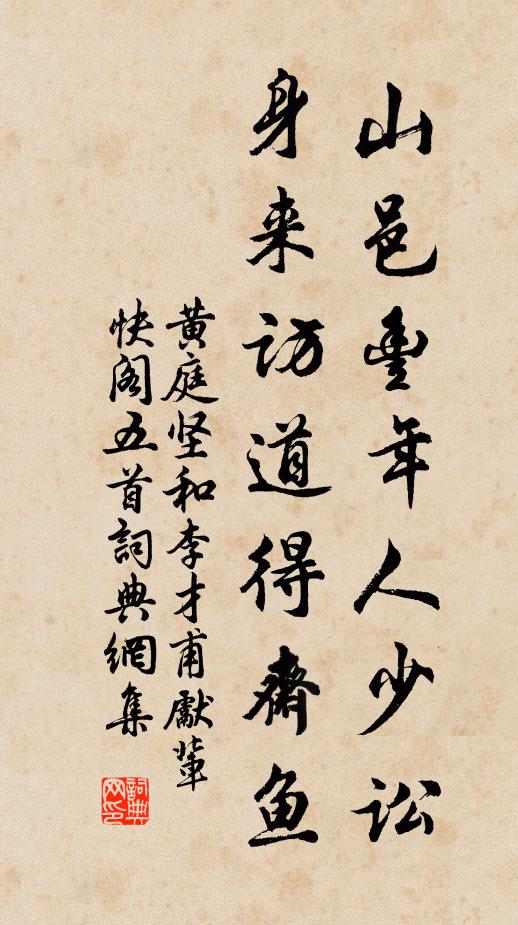 山邑豐年人少讼
身来访道得齋鱼
黄庭坚和李才甫獻輩
快阁五首詞典網集
詞典
网印